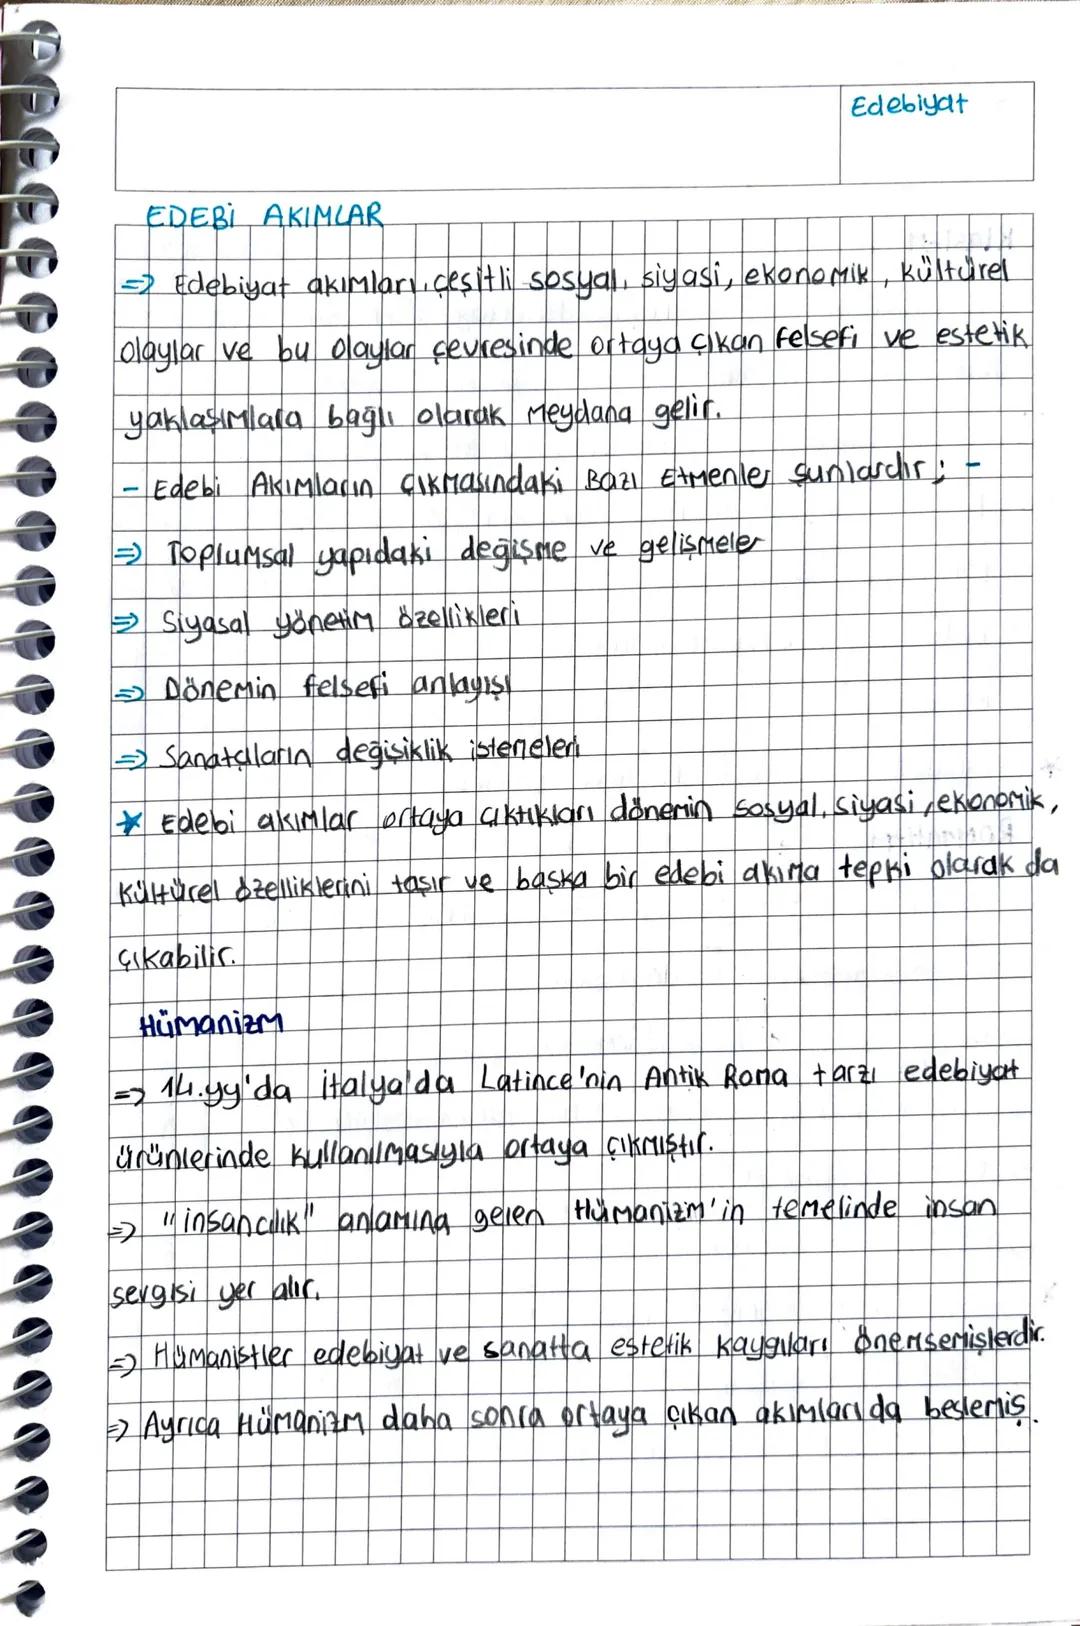 Edebiyat
EDEBİ AKIMLAR
=> Edebiyat akımları, çeşitli sosyal, siyasi, ekonomik, kültürel
olaylar ve bu olaylar çevresinde ortaya çıkan felsefi ve estetik
yaklaşımlara bağlı olarak meydana gelir.
- Edebi Akımların Çıkmasındaki Bazı Etmenler şunlardır; -
=> Toplumsal yapıdaki değişme ve gelişmeler
=> Siyasal yönetim özellikleri
=> Dönemin felsefi anlayışı
=> Sanatçıların değişiklik istemeleri
* Edebi akımlar ortaya çıktıkları dönemin sosyal, siyasi, ekonomik,
kültürel özelliklerini taşır ve başka bir edebi akıma tepki olarak da
çıkabilir.
Hümanizm
=> 14.yy'da İtalya'da Latince'nin Antik Roma tarzı edebiyat
ürünlerinde kullanılmasıyla ortaya çıkmıştır.
=> "insancılık" anlamına gelen Hümanizm'in temelinde insan
sevgisi yer alır.
=> Hümanistler edebiyat ve sanatta estetik kaygıları önemsemişlerdir.
=> Ayrıca Hümanizm daha sonra ortaya çıkan akımları da beslemiş.